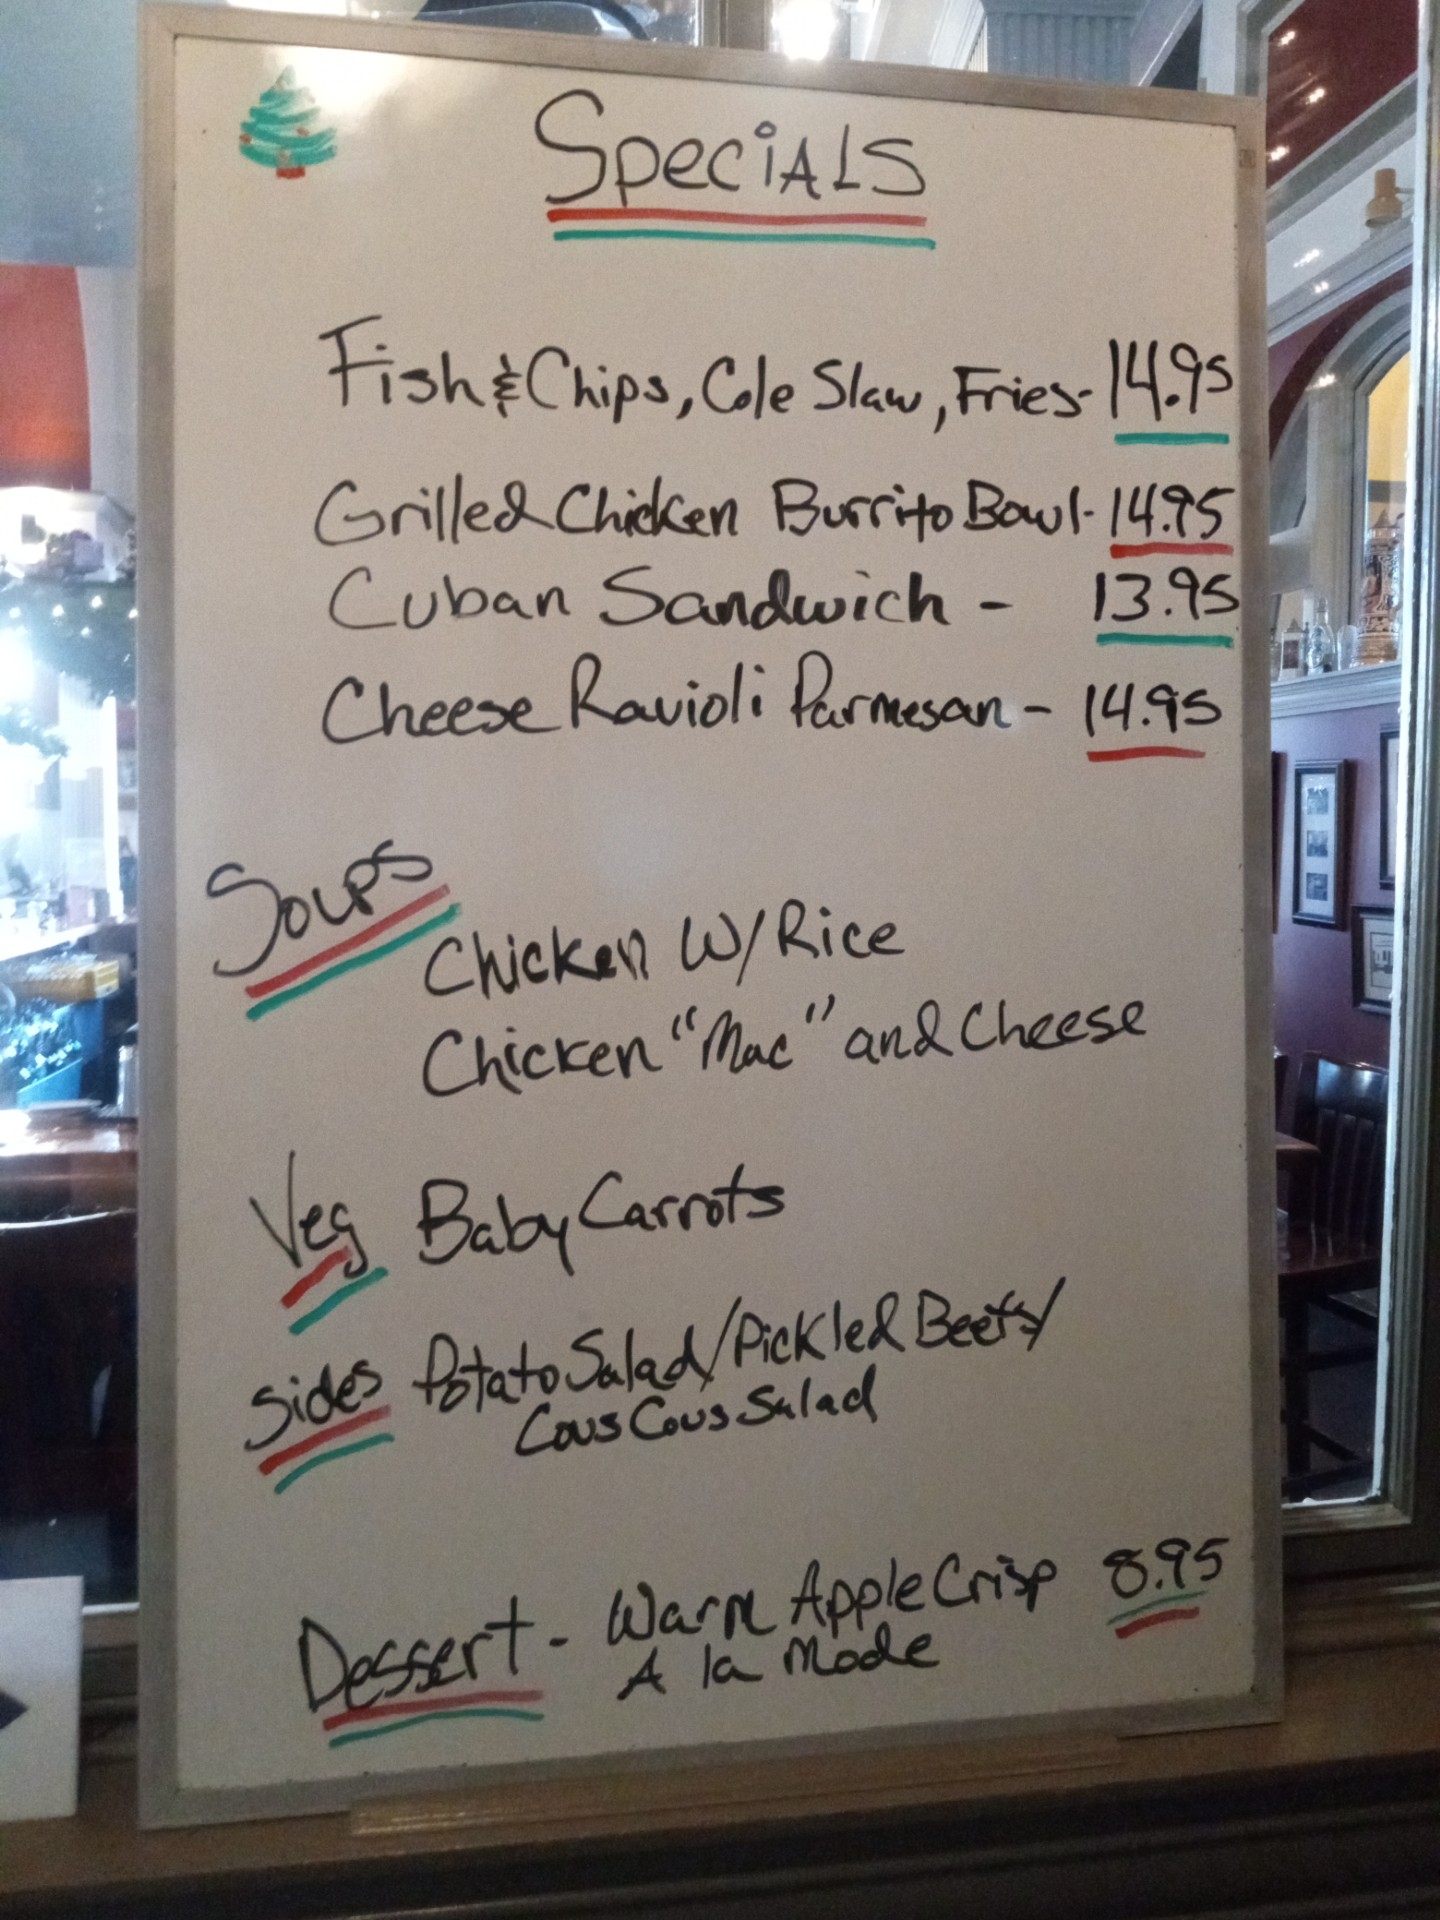 Specials
Fish & Chips, Cole Slaw, Fries- 14.95
Grilled Chicken Burrito Bowl- 14.95
Cuban Sandwich - 13.95
Cheese Ravioli Parmesan - 14.95
Soups
Chicken W/Rice
Chicken "Mac" and Cheese
Veg Baby Carrots
Sides Potato Salad/Pickled Beets/
Cous Cous Salad
Dessert - Warm Apple Crisp 8.95
A la Mode